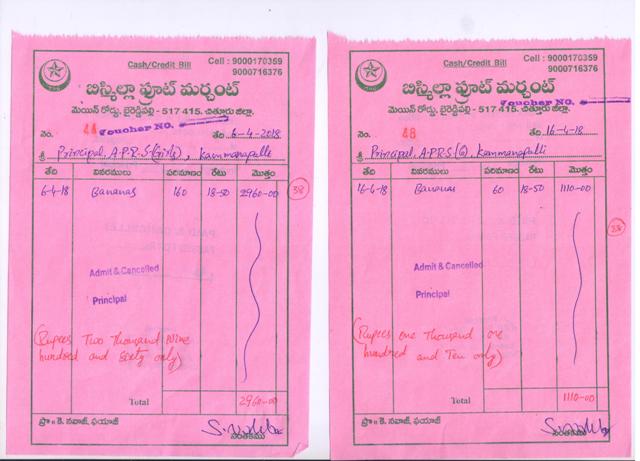 Cash/Credit Bill
Cell : 9000170359
9000716376
బిస్మిల్లా ఫ్రూట్ మర్చంట్
మెయిన్ రోడ్డు, బైరెడ్డిపల్లి - 517 415. చిత్తూరు జిల్లా.
Voucher NO.
నెం. 44 తేది 6-4-2018
శ్రీ Principal, A.P.R.S (Girls), Kammanapalli
తేది వివరములు పరిమాణం రేటు మొత్తం
6-4-18 Bananas 160 18-50 2960-00
38
Admit & Cancelled
Principal
(Rupees Two Thousand Nine
hundred and Sixty only)
Total 2960-00
ప్రొ॥ కె. నవాజ్, ఫయాజ్
సంతకము
Cash/Credit Bill
Cell : 9000170359
9000716376
బిస్మిల్లా ఫ్రూట్ మర్చంట్
మెయిన్ రోడ్డు, బైరెడ్డిపల్లి - 517 415. చిత్తూరు జిల్లా.
Voucher NO.
నెం. 48 తేది 16-4-18
శ్రీ Principal, A.P.R.S (G), Kammanapalli
తేది వివరములు పరిమాణం రేటు మొత్తం
16-4-18 Bananas 60 18-50 1110-00
Admit & Cancelled
Principal
(Rupees One Thousand one
hundred and Ten only)
Total 1110-00
ప్రొ॥ కె. నవాజ్, ఫయాజ్
సంతకము